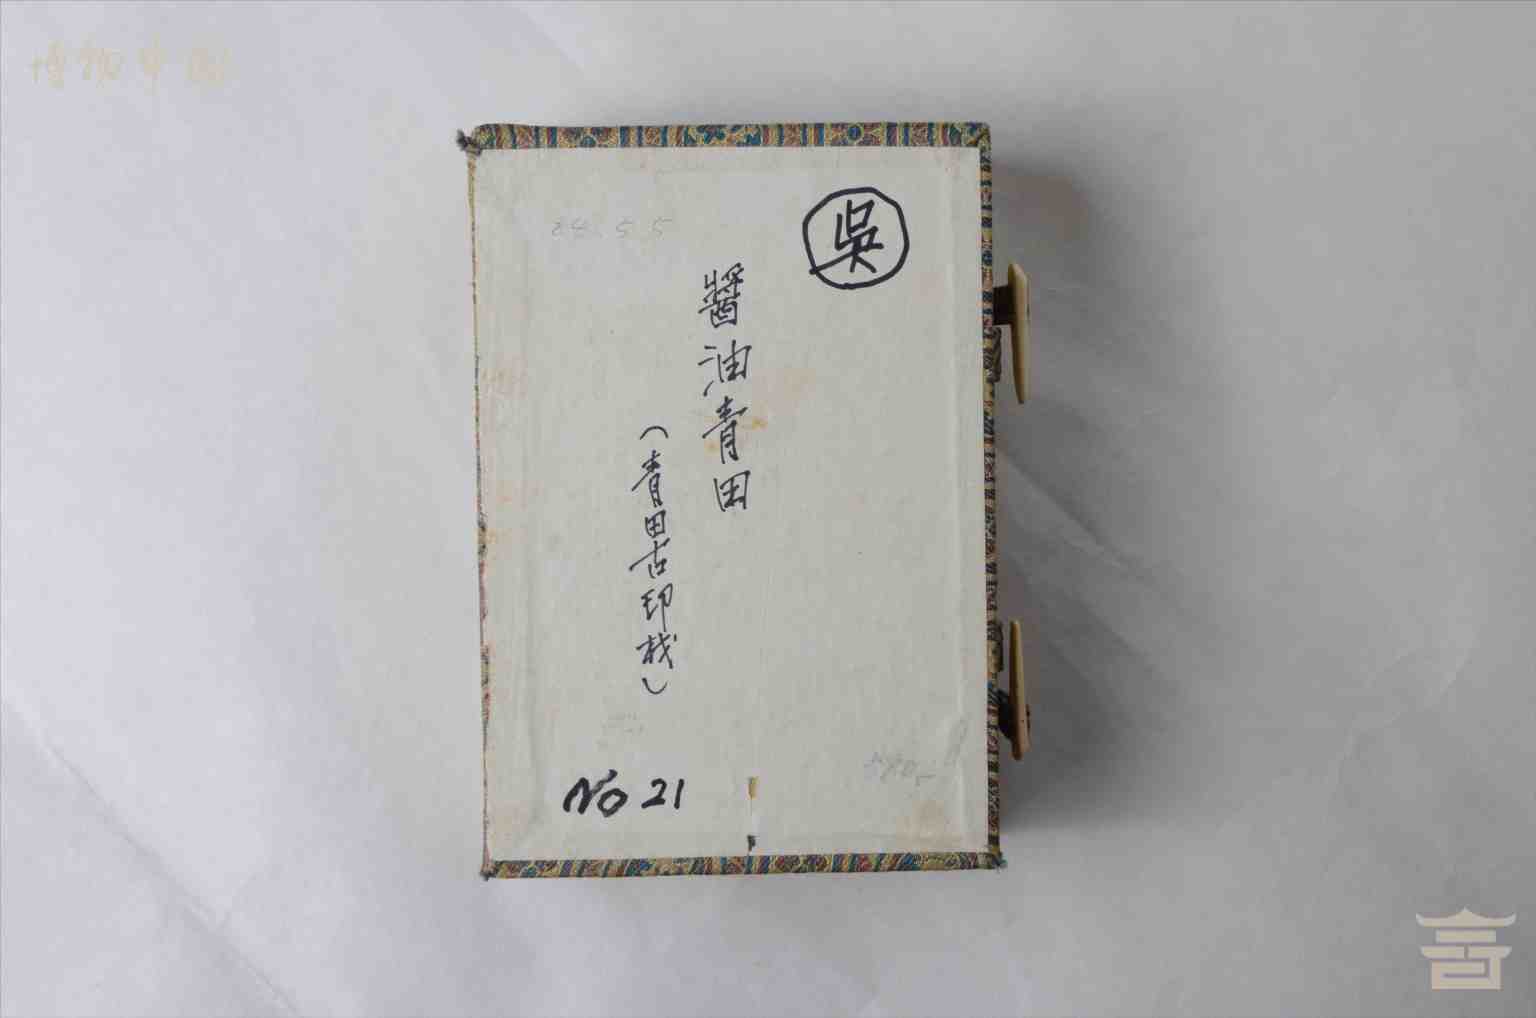 博物中國
吳
醬油青田
（青田古印材）
No 21